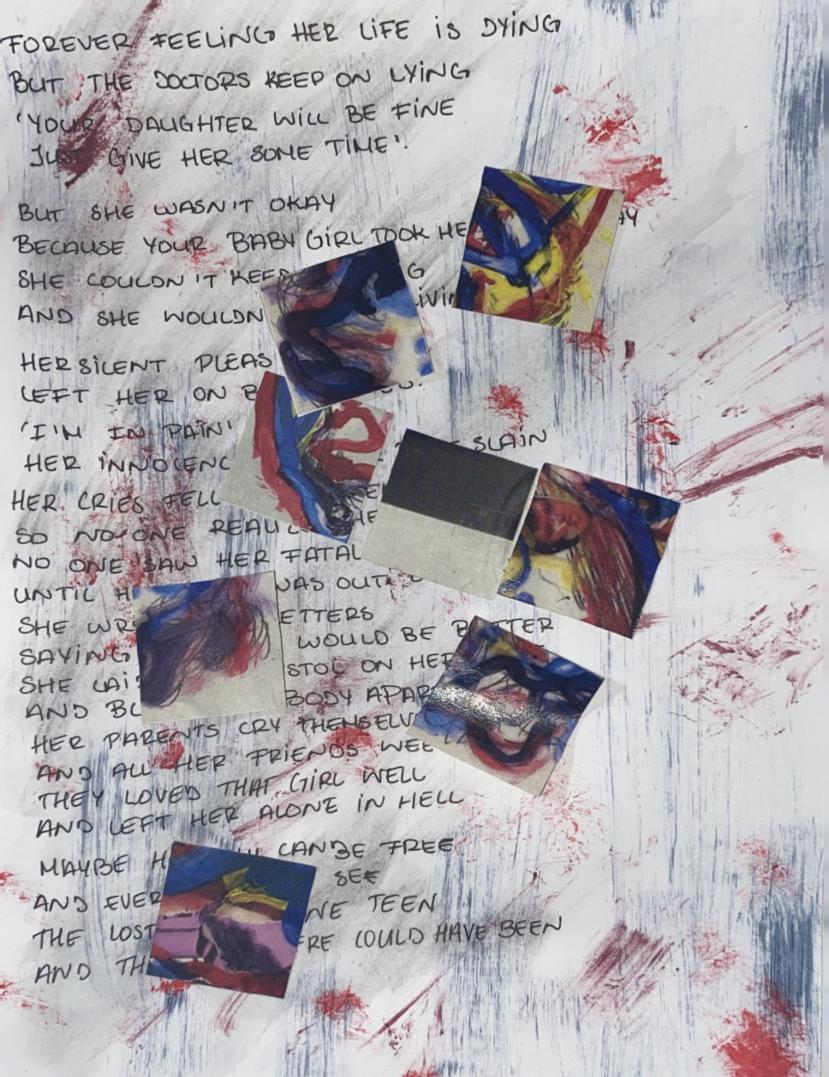 FOREVER FEELING HER LIFE IS DYING
BUT THE DOCTORS KEEP ON LYING
'YOUR DAUGHTER WILL BE FINE
JUST GIVE HER SOME TIME'.
BUT SHE WASN'T OKAY
BECAUSE YOUR BABY GIRL TOOK HE
SHE COULDN'T KEEP G
AND SHE WOULDN
HER SILENT PLEAS
LEFT HER ON
'I'M IN PAIN' SLAIN
HER INNOCENC
HER CRIES FELL
SO NO ONE
NO ONE SAW HER FATAL
UNTIL H WAS OUT
SHE WR ETTERS
SAYING WOULD BE BETTER
SHE LAI STOL ON HER
AND BL BODY APAR
HER PARENTS CRY THEMSELV
AND ALL HER FRIENDS WEE
THEY LOVED THAT GIRL WELL
AND LEFT HER ALONE IN HELL
MAYBE H CAN BE FREE
AND EVER SEE
THE LOST TEEN
AND TH RE COULD HAVE BEEN